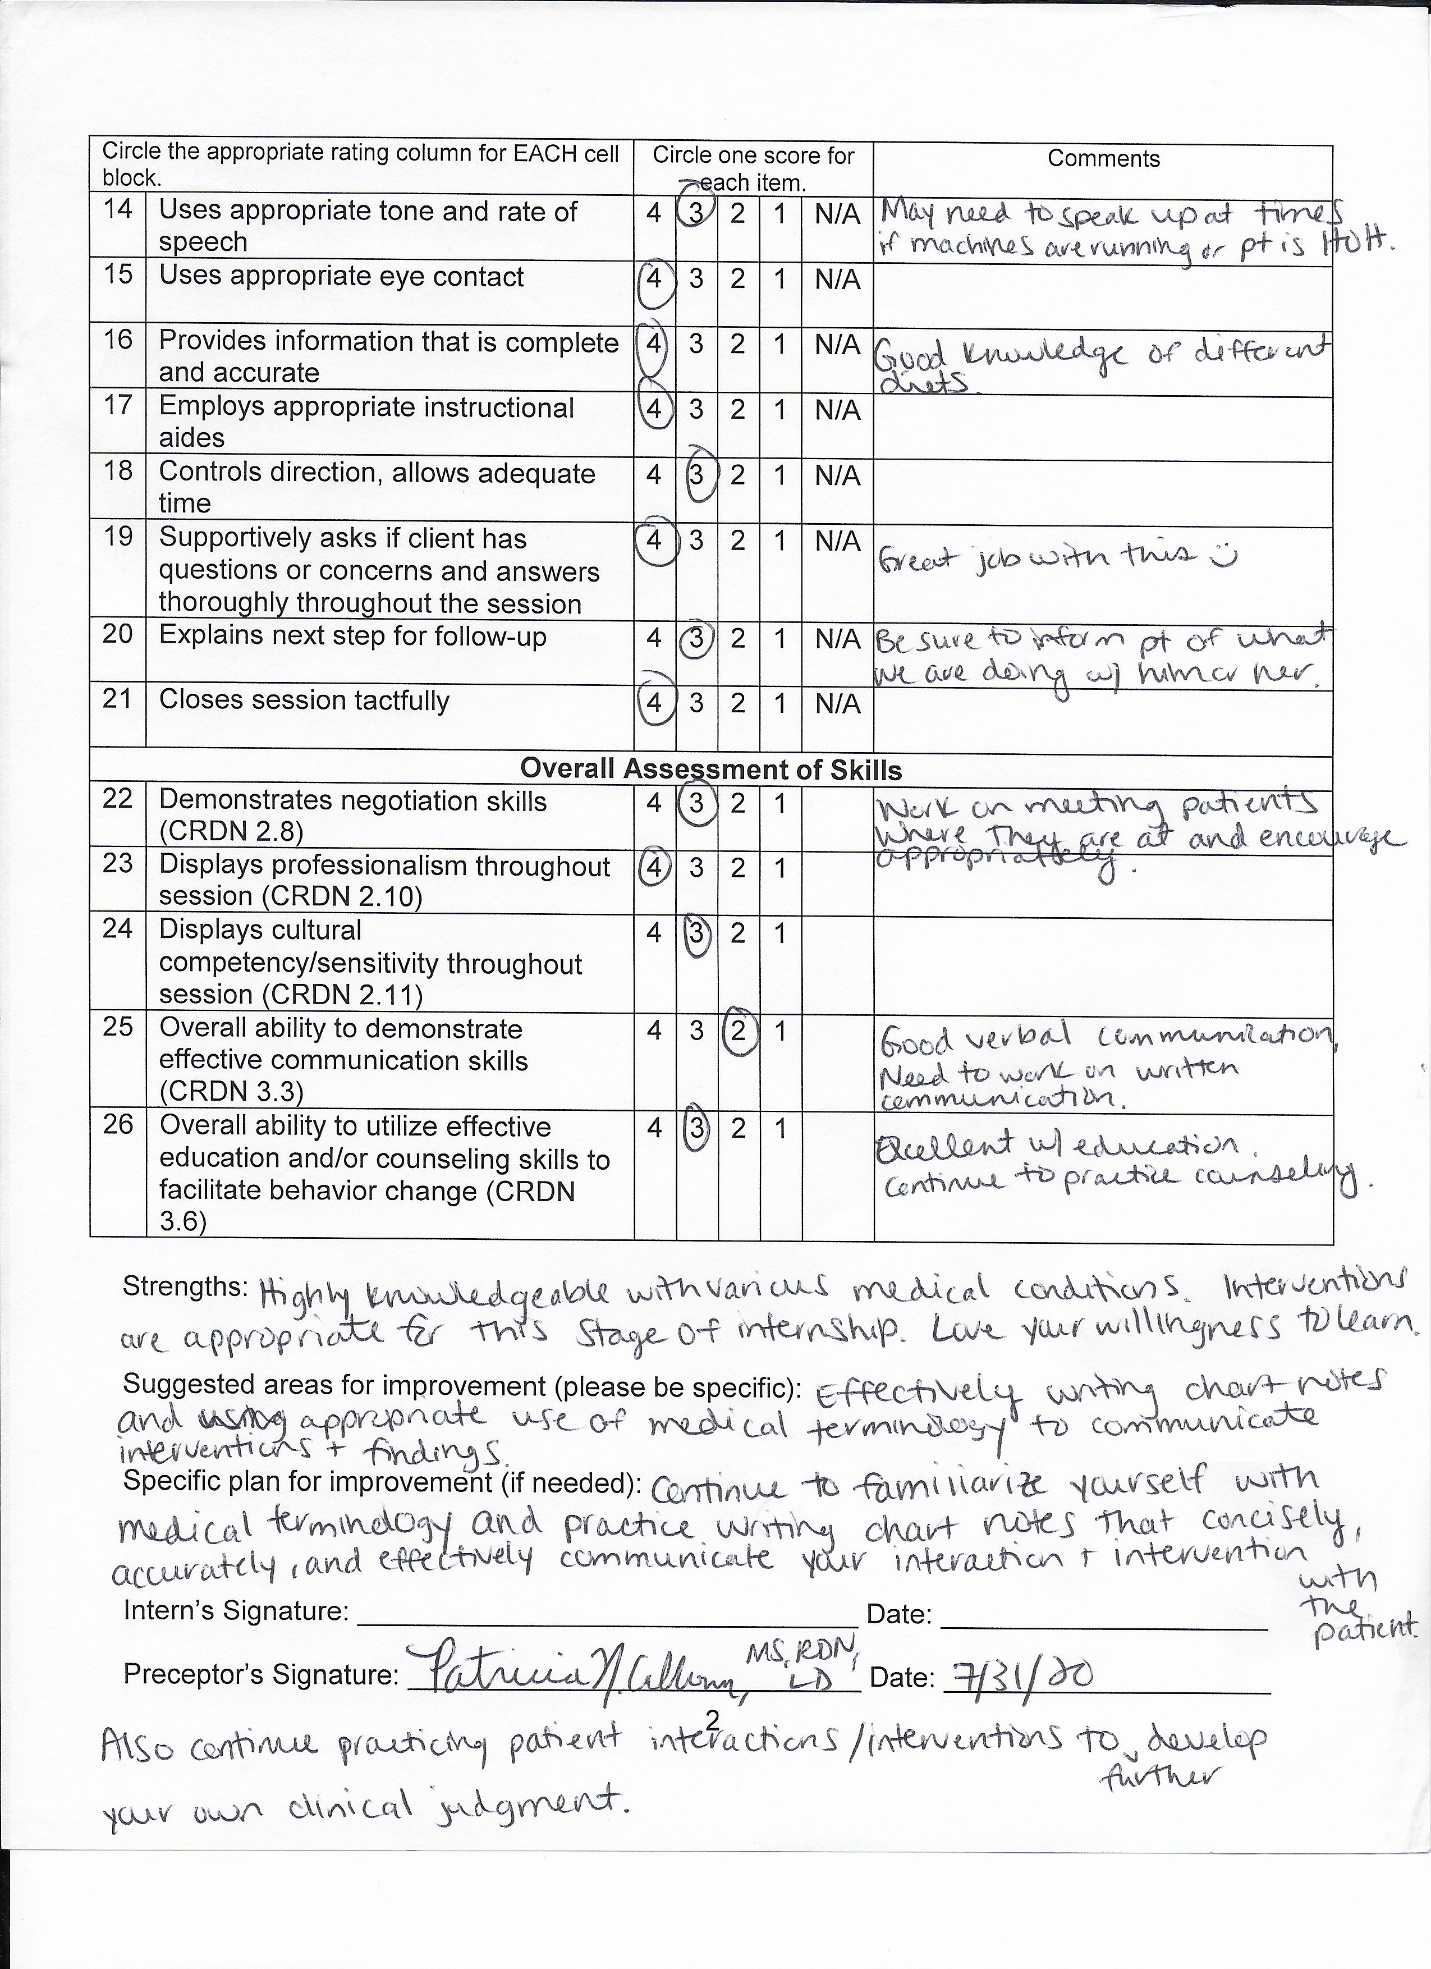 Circle the appropriate rating column for EACH cell
block.
Circle one score for
each item.
Comments
14 Uses appropriate tone and rate of
speech
4 3 2 1 N/A
May need to speak up at times
if machines are running or pt is HOH.
15 Uses appropriate eye contact
4 3 2 1 N/A
16 Provides information that is complete
and accurate
4 3 2 1 N/A
Good knowledge of different
diets.
17 Employs appropriate instructional
aides
4 3 2 1 N/A
18 Controls direction, allows adequate
time
4 3 2 1 N/A
19 Supportively asks if client has
questions or concerns and answers
thoroughly throughout the session
4 3 2 1 N/A
Great job with this
20 Explains next step for follow-up
4 3 2 1 N/A
Be sure to inform pt of what
we are doing w/ him or her.
21 Closes session tactfully
4 3 2 1 N/A
Overall Assessment of Skills
22 Demonstrates negotiation skills
(CRDN 2.8)
4 3 2 1
Work on meeting patients
where they are at and encourage
appropriately.
23 Displays professionalism throughout
session (CRDN 2.10)
4 3 2 1
24 Displays cultural
competency/sensitivity throughout
session (CRDN 2.11)
4 3 2 1
25 Overall ability to demonstrate
effective communication skills
(CRDN 3.3)
4 3 2 1
Good verbal communication,
Need to work on written
communication.
26 Overall ability to utilize effective
education and/or counseling skills to
facilitate behavior change (CRDN
3.6)
4 3 2 1
Excellent w/ education.
Continue to practice counseling.
Strengths: Highly knowledgeable with various medical conditions. Interventions
are appropriate for this stage of internship. Love your willingness to learn.
Suggested areas for improvement (please be specific): Effectively writing chart notes
and appropriate use of medical terminology to communicate
interventions + findings.
Specific plan for improvement (if needed): Continue to familiarize yourself with
medical terminology and practice writing chart notes that concisely,
accurately, and effectively communicate your interaction + intervention
with
the
patient.
Intern's Signature: Date:
Preceptor's Signature: Patricia MS, RDN, LD Date: 7/31/20
2
Also continue practicing patient interactions/interventions to further develop
your own clinical judgment.